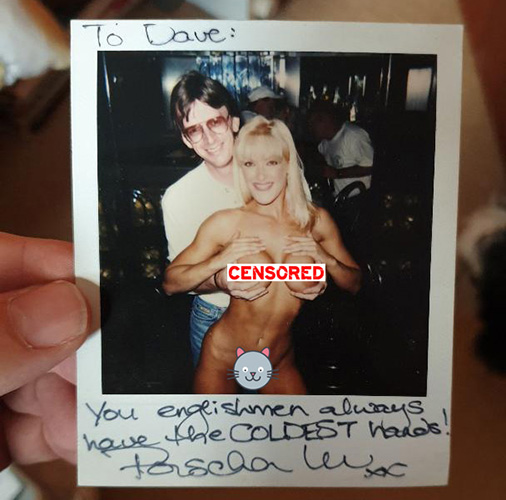 To Dave:
CENSORED
You englishmen always
have the COLDEST hands!